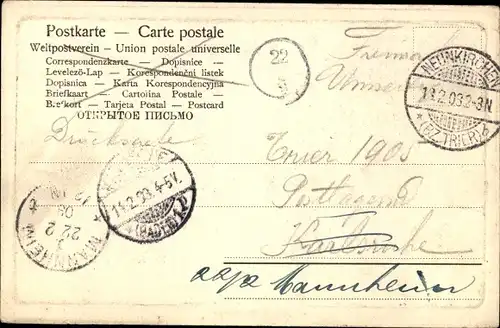 Postkarte — Carte postale
Weltpostverein - Union postale universelle
Correspondenzkarte - Dopisnice -
Levelező-Lap - Korespondenční listek
Dopisnica - Karta Korespondencyjna
Briefkaart - Cartolina Postale -
Brefkort - Tarjeta Postal - Postcard
ОТКРЫТОЕ ПИСЬМО
22
NEUNKIRCHEN
13.2.03.2-3N.
* (BZ.TRIER) *
Drucksache
11.2.03.4-5V.
* (BADEN) 1P
MANNHEIM
22 2
03
Trier 1905
Postlagernd
Karlsruhe
Mannheim